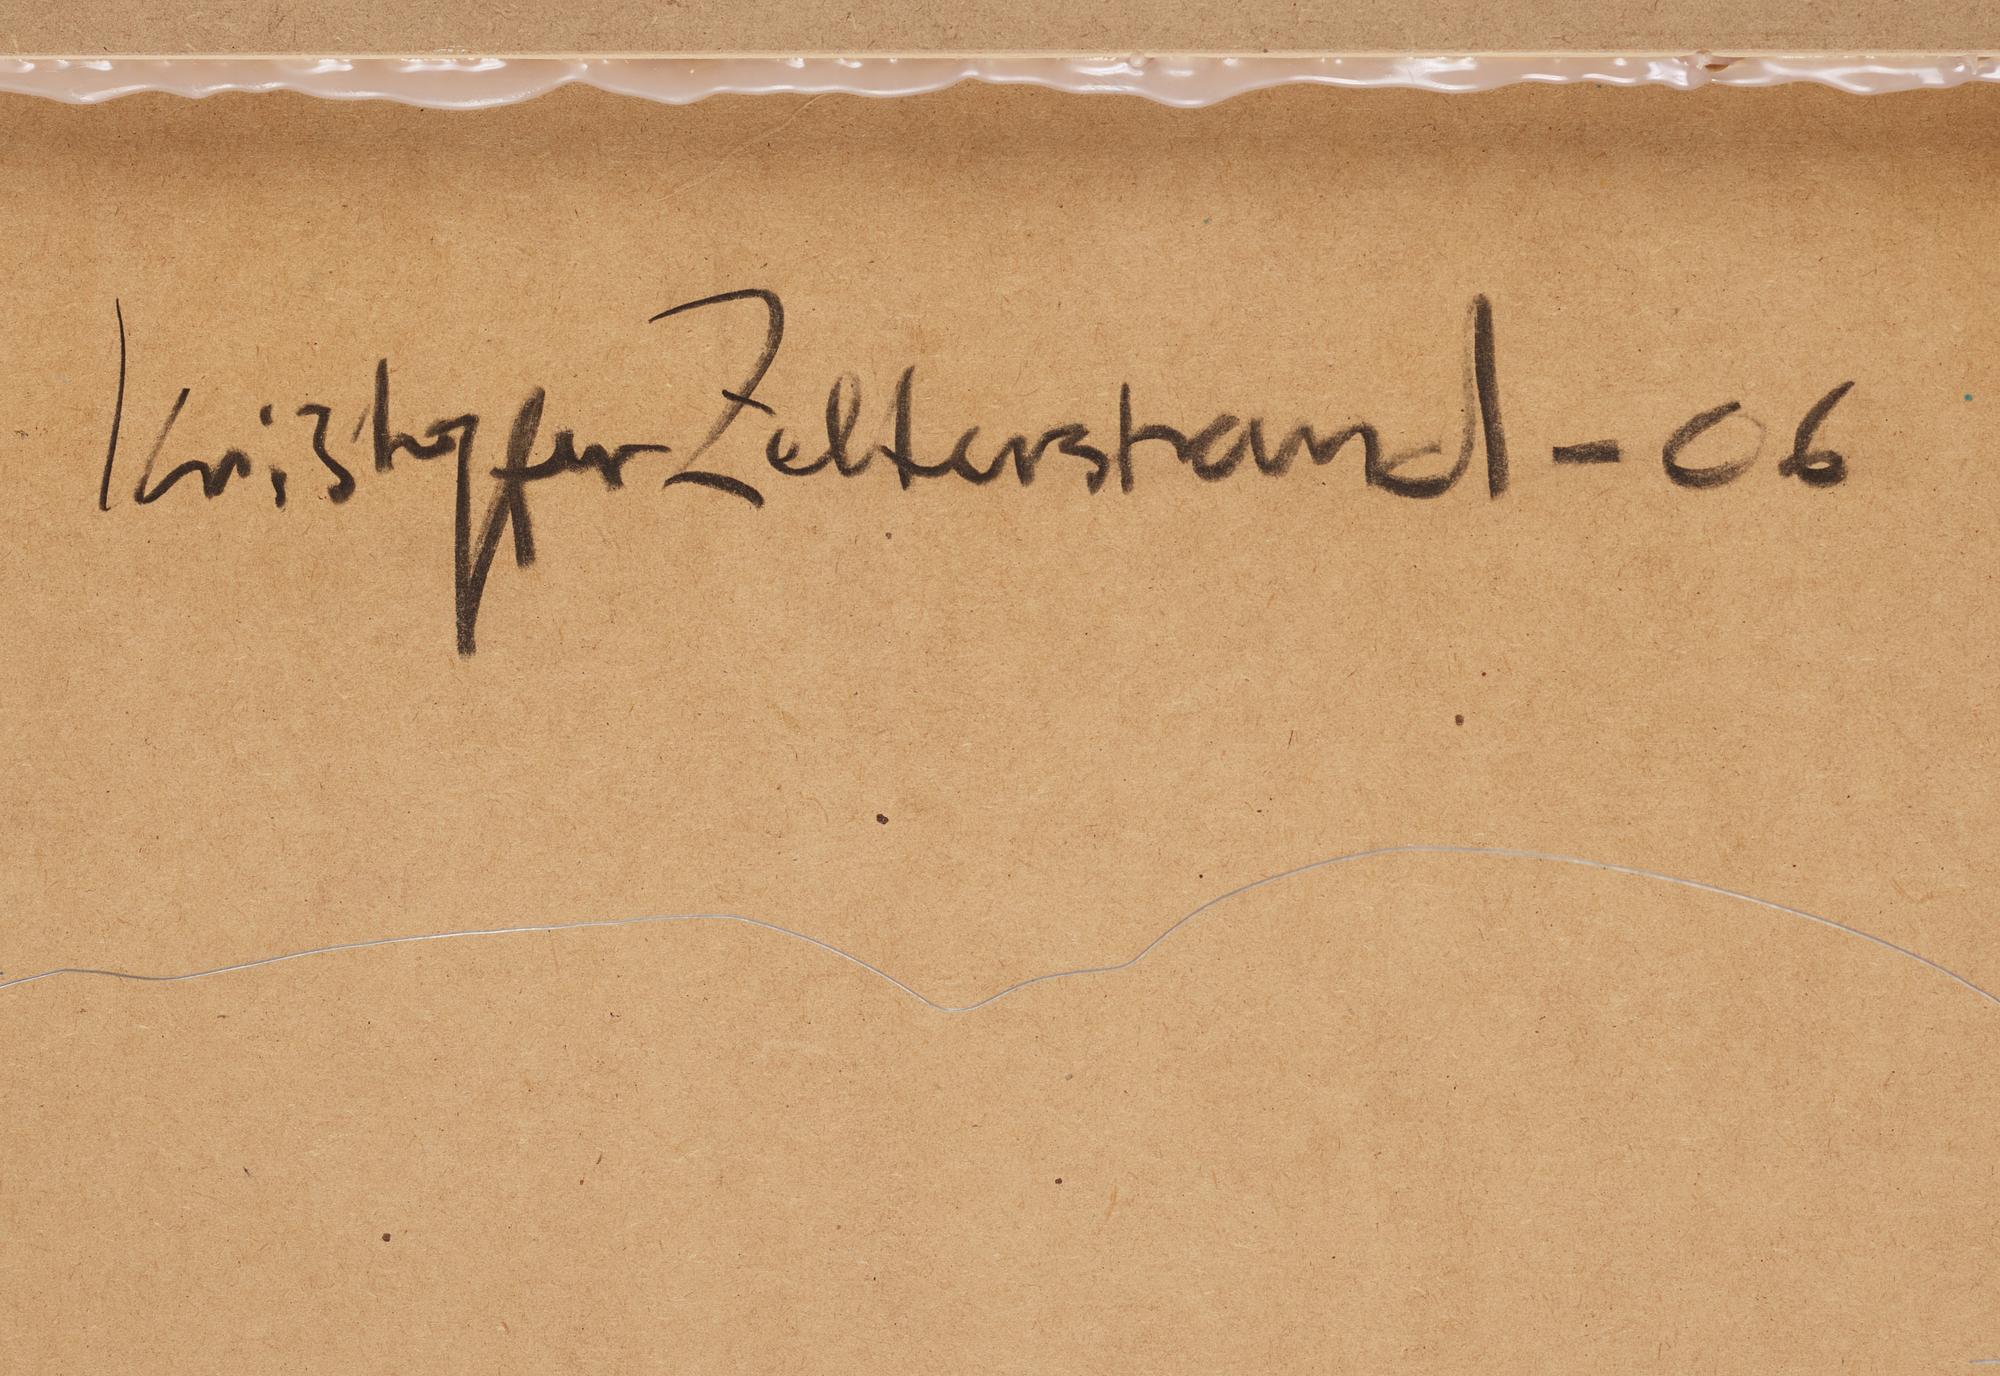 Kristofer Zetterstrand - 06